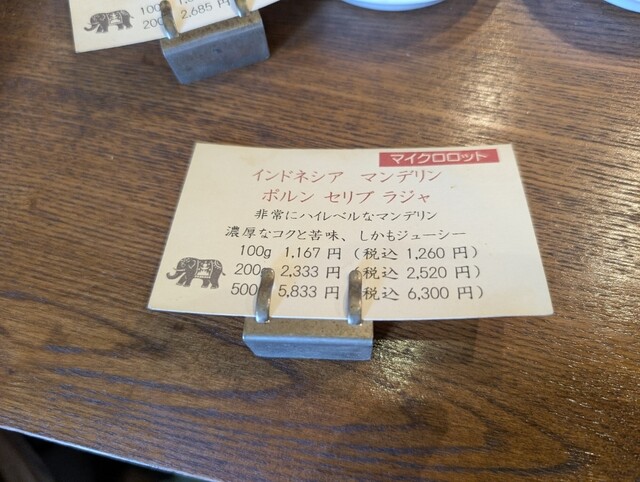 100g
200 2,685 円
マイクロロット
インドネシア マンデリン
ボルン セリブ ラジャ
非常にハイレベルなマンデリン
濃厚なコクと苦味、しかもジューシー
100g 1,167 円（税込 1,260 円）
200g 2,333 円（税込 2,520 円）
500 5,833 円（税込 6,300 円）